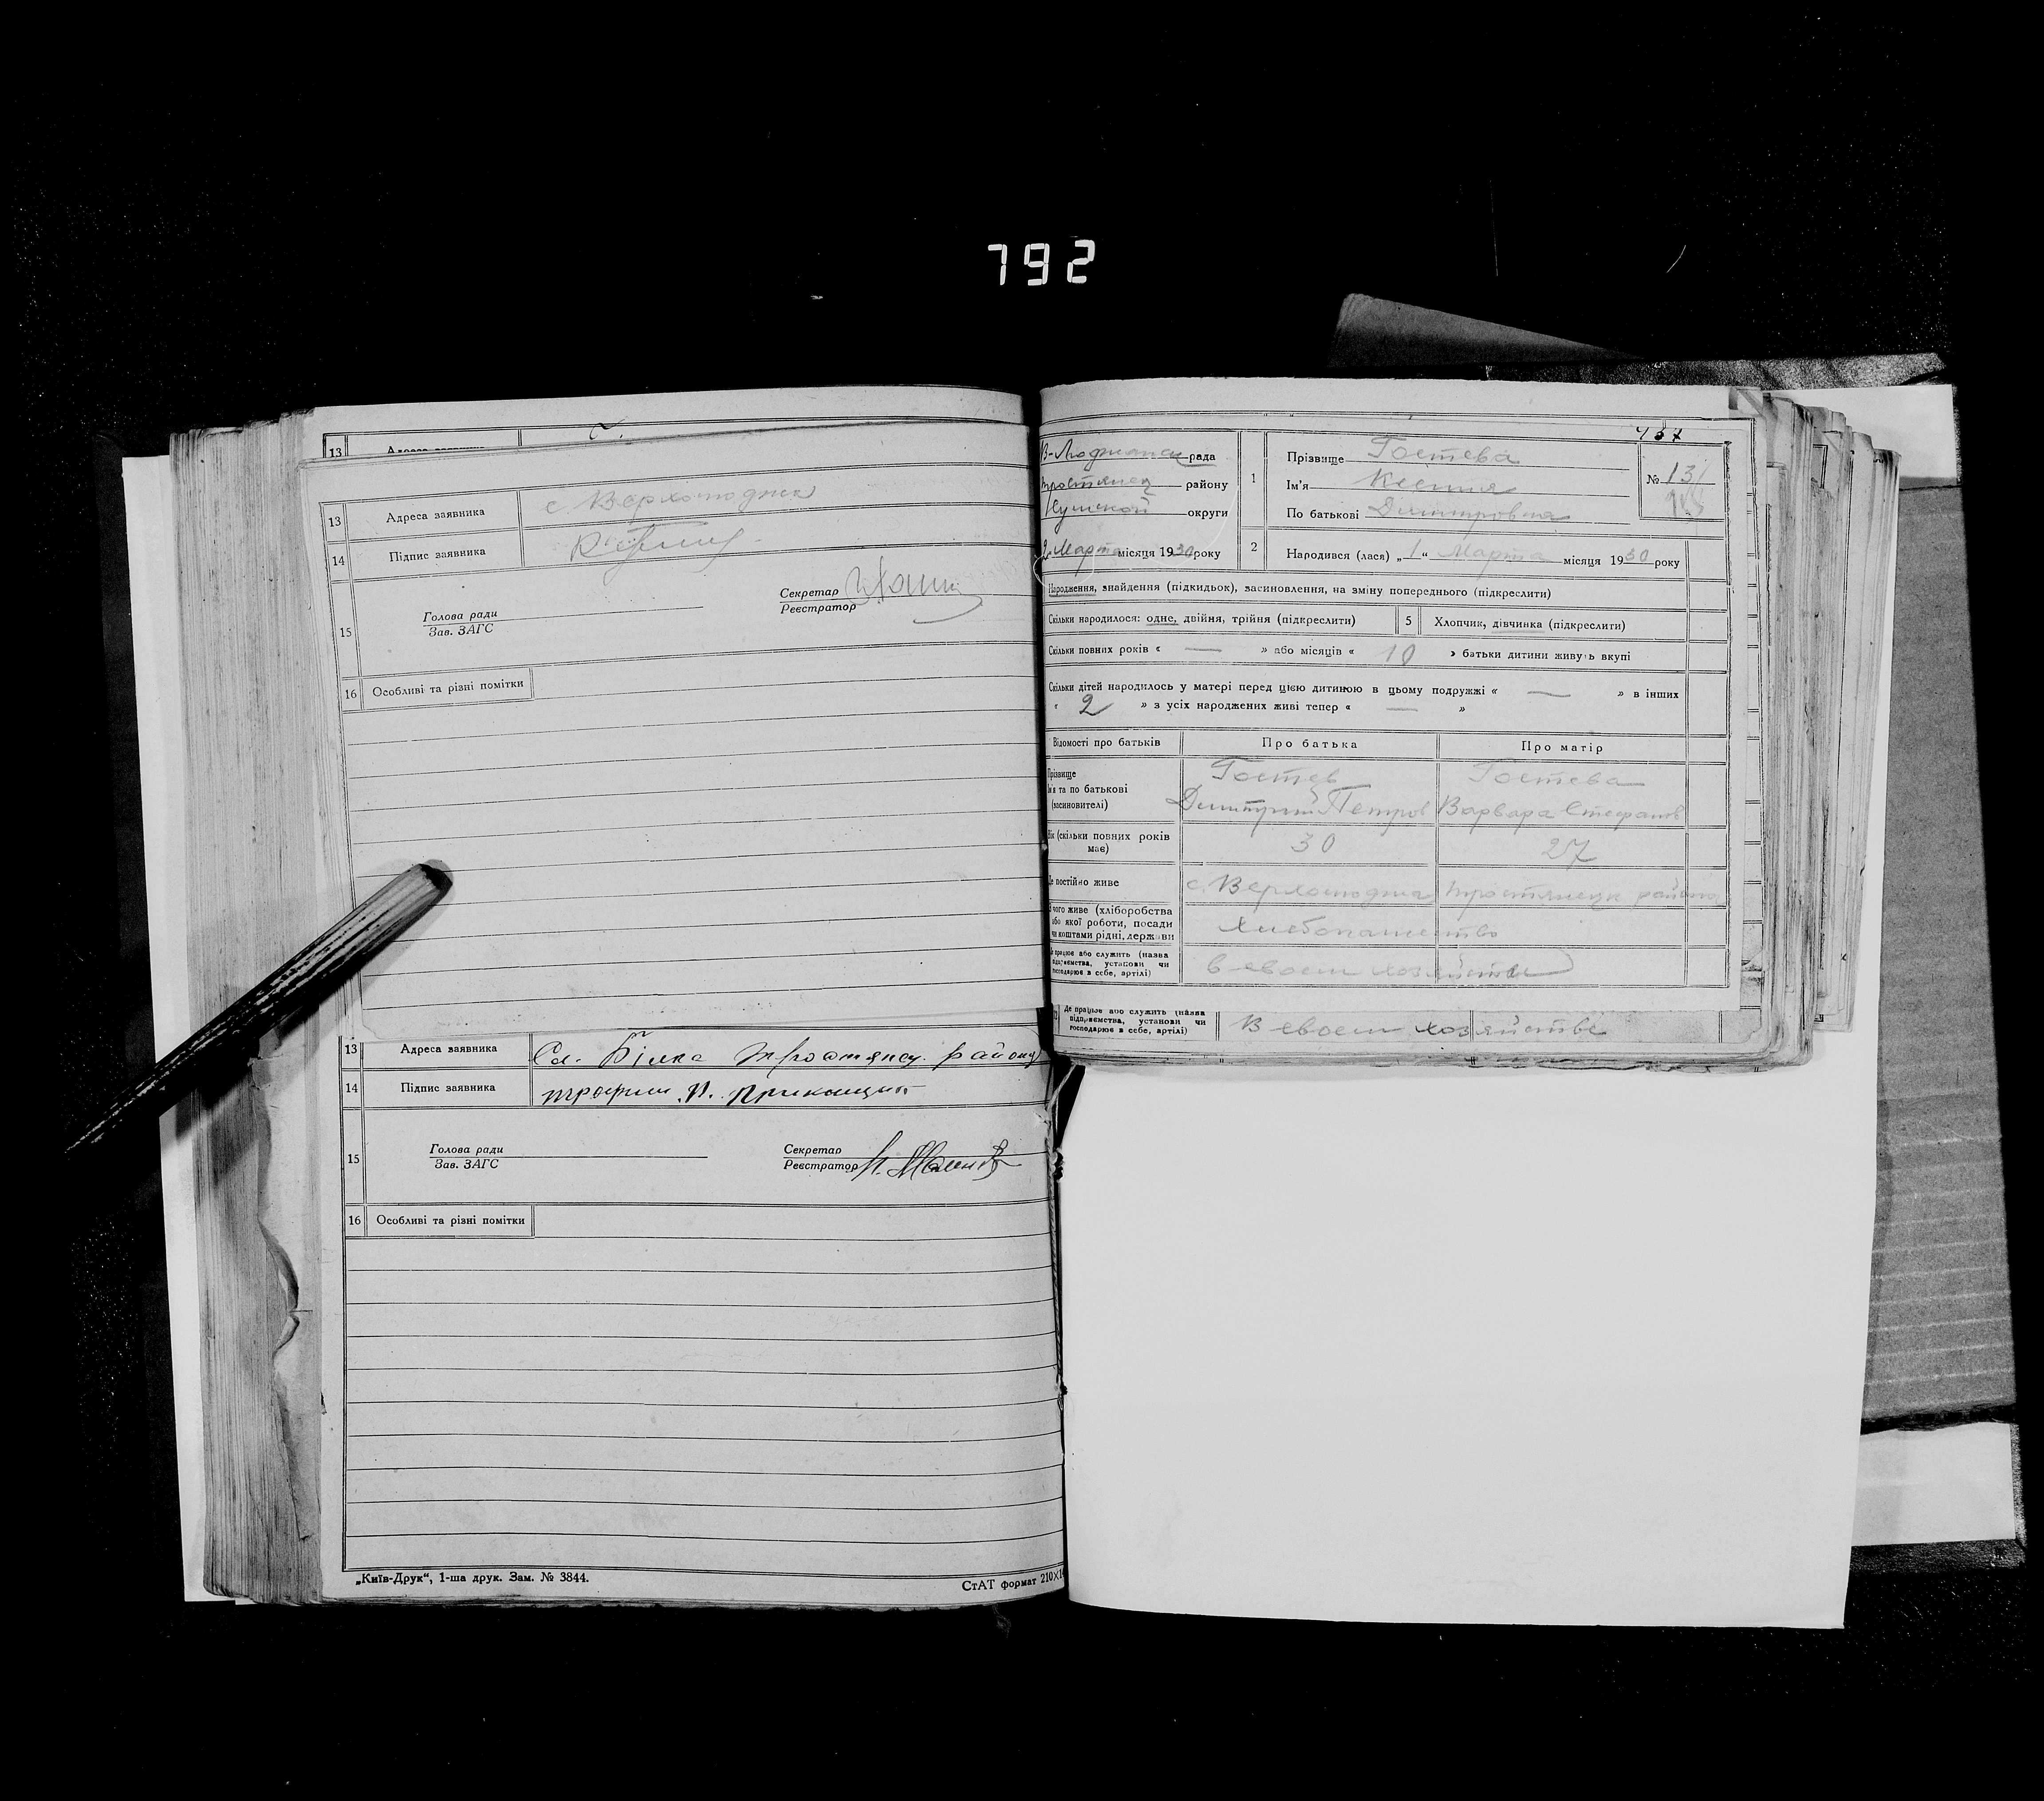 792
13 Адреса заявника
13 Адреса заявника с. Верхолюджа
14 Підпис заявника
15 Голова ради
Зав. ЗАГС
Секретар
Реєстратор
16 Особливі та різні помітки
13 Адреса заявника Сл. Білка Тростянец. району
14 Підпис заявника Трофим П.
15 Голова ради
Зав. ЗАГС
Секретар
Реєстратор
16 Особливі та різні помітки
„Київ-Друк“, 1-ша друк. Зам. № 3844.
СтАТ формат 210×1
рада
району
округи
2 Марта місяця 1930 року
1 Прізвище Гостева
Ім'я Ксения
По батькові Димитровна
№ 13
2 Народився (лася) „1“ Марта місяця 1930 року
Народження, знайдення (підкидьок), засиновлення, на зміну попереднього (підкреслити)
Скільки народилося: одне, двійня, трійня (підкреслити) 5 Хлопчик, дівчинка (підкреслити)
Скільки повних років « — » або місяців « 10 » батьки дитини живуть вкупі
Скільки дітей народилось у матері перед цією дитиною в цьому подружжі « — » в інших
« 2 » з усіх народжених живі тепер « — »
Відомості про батьків Про батька Про матір
Прізвище
Ім'я та по батькові
(засиновителі)
Гостев
Димитрий Петров
Гостева
Варвара Стефанов
Вік (скільки повних років
має) 30 27
Де постійно живе с. Верхолюджа Тростянецк района
З чого живе (хліборобства
або якої роботи, посади
чи коштами рідні, держави
Хлебопашество
працює або служить (назва
підприємства, установи чи
господарює в себе, артілі)
в своем хозяйстве
Де працює або служить (назва
підприємства, установи чи
господарює в себе, артілі)
В своем хозяйстве